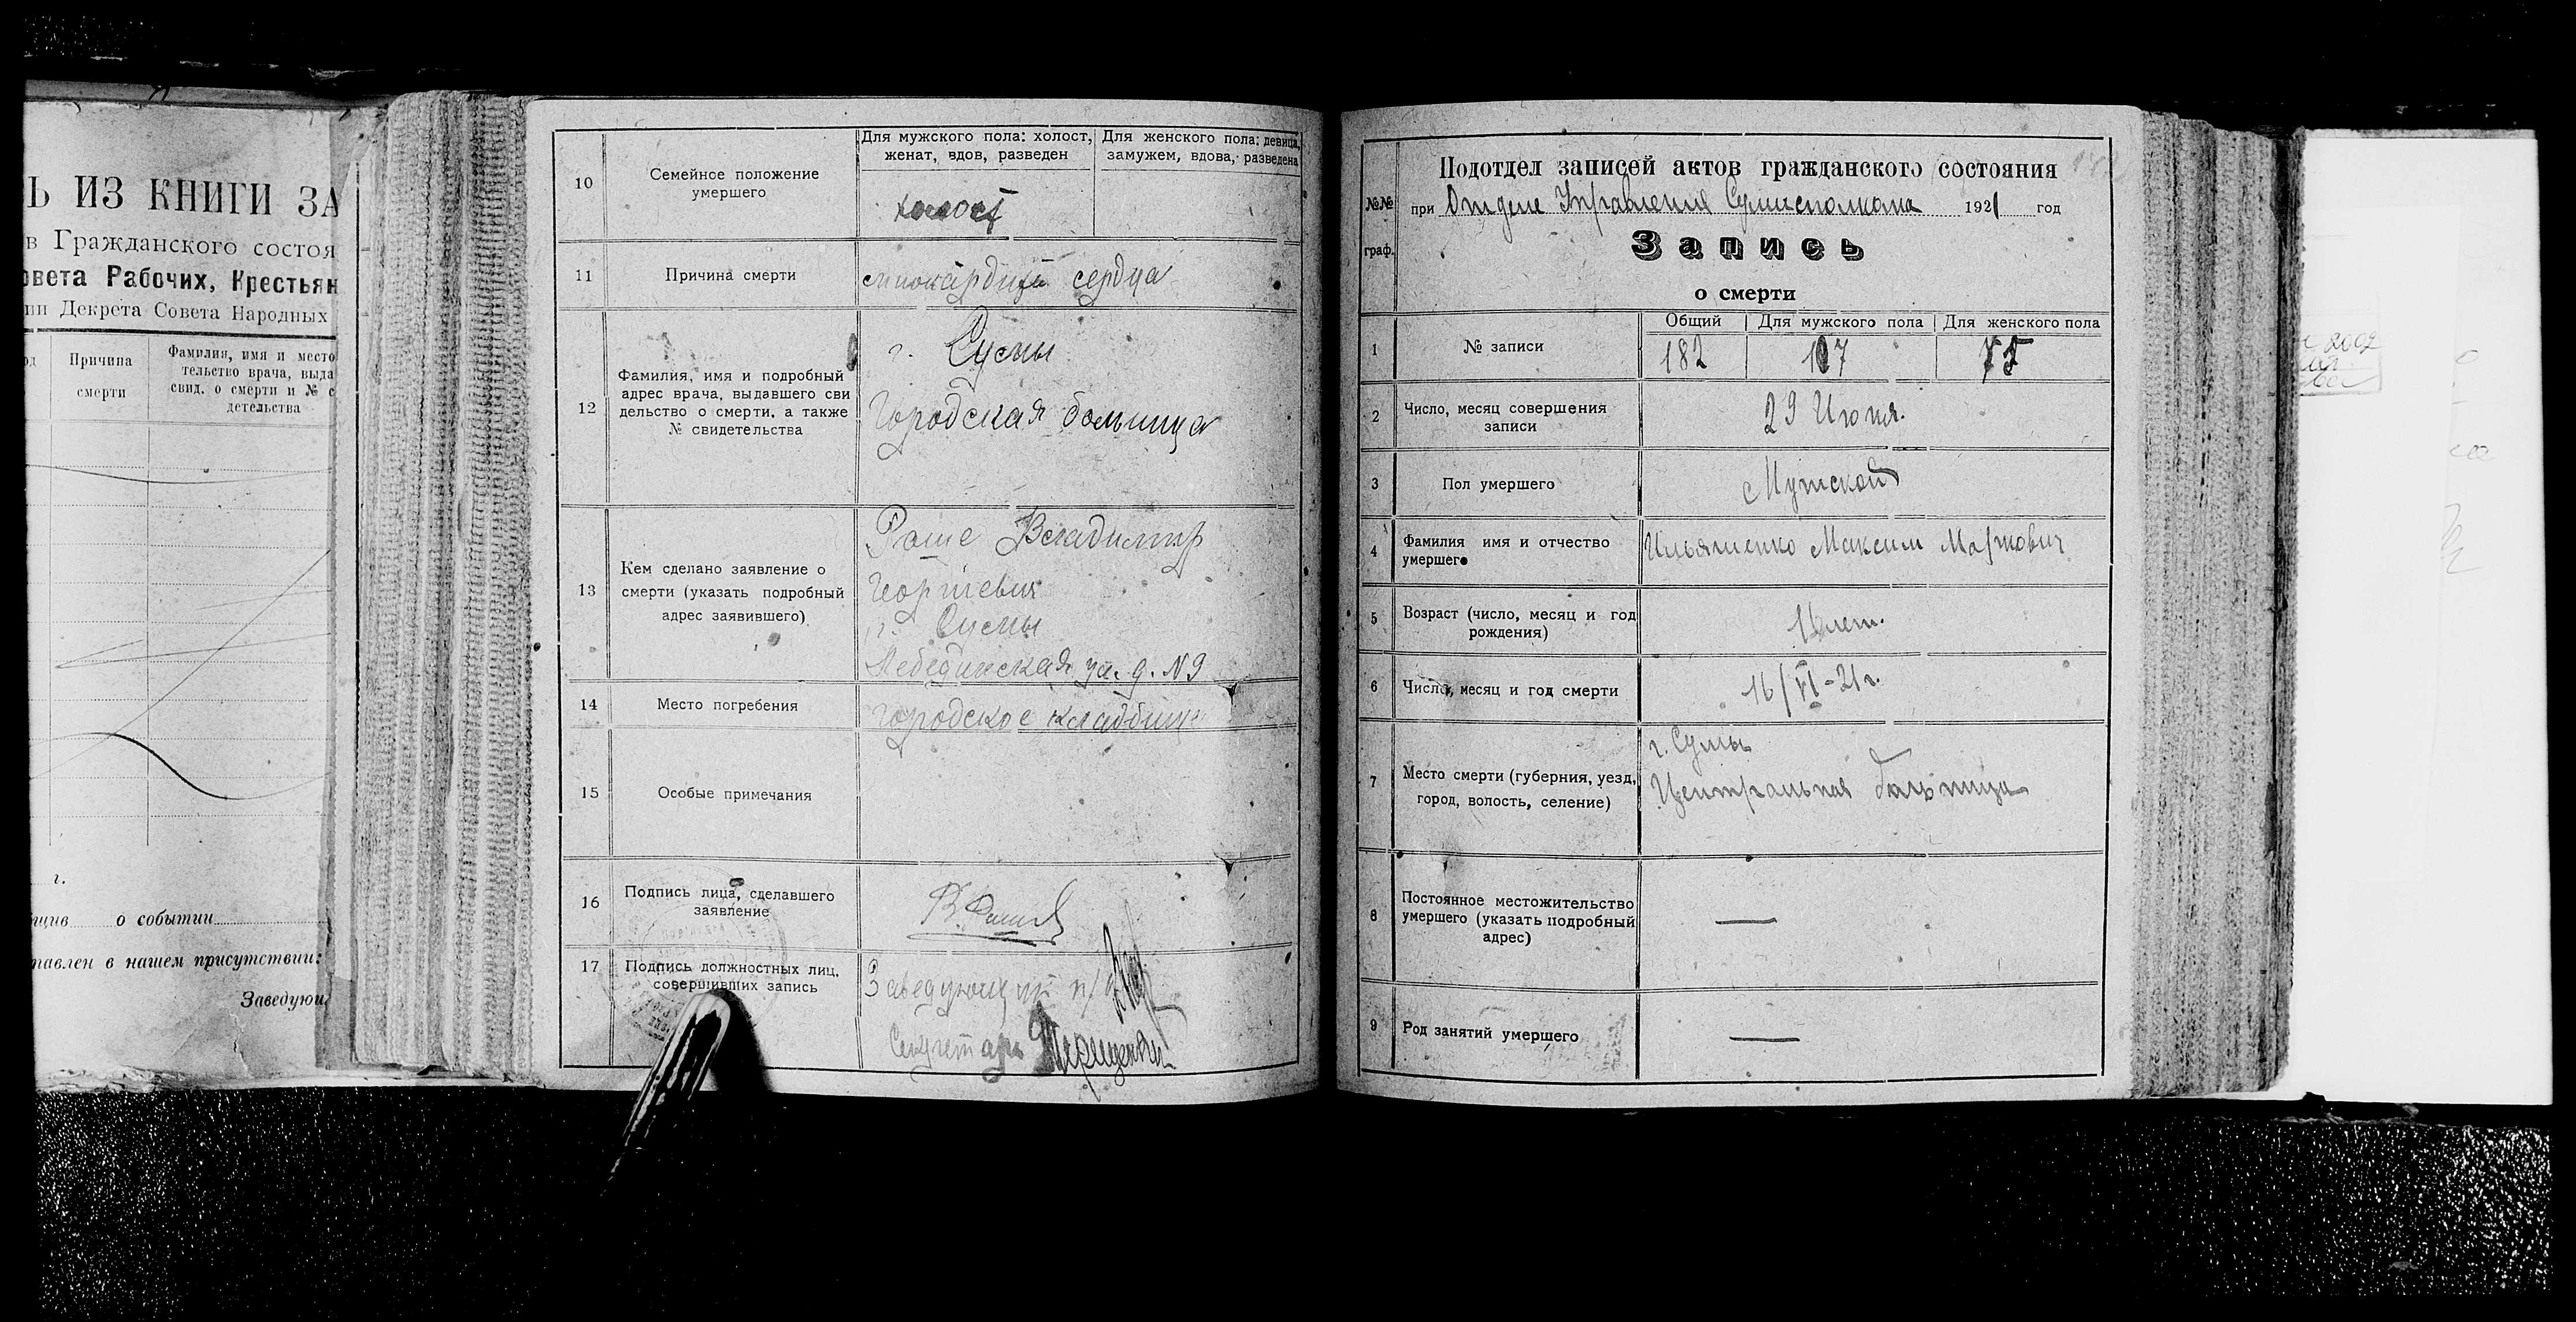 Ь ИЗ КНИГИ ЗА
в Гражданского состоя
овета Рабочих, Крестьян
ии Декрета Совета Народных
Причина смерти
Фамилия, имя и место
тельство врача, выда
свид. о смерти и № с
детельства
г.
о событии
тавлен в нашем присутствии:
Заведующ
10
Семейное положение
умершего
Для мужского пола: холост,
женат, вдов, разведен
Для женского пола: девица,
замужем, вдова, разведена
холост
11
Причина смерти
миокардит сердца
12
Фамилия, имя и подробный
адрес врача, выдавшего сви
дельство о смерти, а также
№ свидетельства
г. Сумы
Городская больница
13
Кем сделано заявление о
смерти (указать подробный
адрес заявившего)
Роше Владимир
Георгиевич
г. Сумы
Лебединская ул. д. N 9
14
Место погребения
городское кладбище
15
Особые примечания
16
Подпись лица, сделавшего
заявление
17
Подпись должностных лиц,
совершивших запись
Заведующий п/о
Секретарь
№№
граф.
Подотдел записей актов гражданского состояния
при Отделе Управления Сумисполкома 1921 год
Запись
о смерти
1
№ записи
Общий
Для мужского пола
Для женского пола
182
107
75
2
Число, месяц совершения
записи
29 Июня.
3
Пол умершего
Мужской
4
Фамилия имя и отчество
умершего
Ильяшенко Максим Маркович
5
Возраст (число, месяц и год
рождения)
лет.
6
Число, месяц и год смерти
16/VI-21 г.
7
Место смерти (губерния, уезд,
город, волость, селение)
г. Сумы
Центральная больница
8
Постоянное местожительство
умершего (указать подробный
адрес)
—
9
Род занятий умершего
—
2002